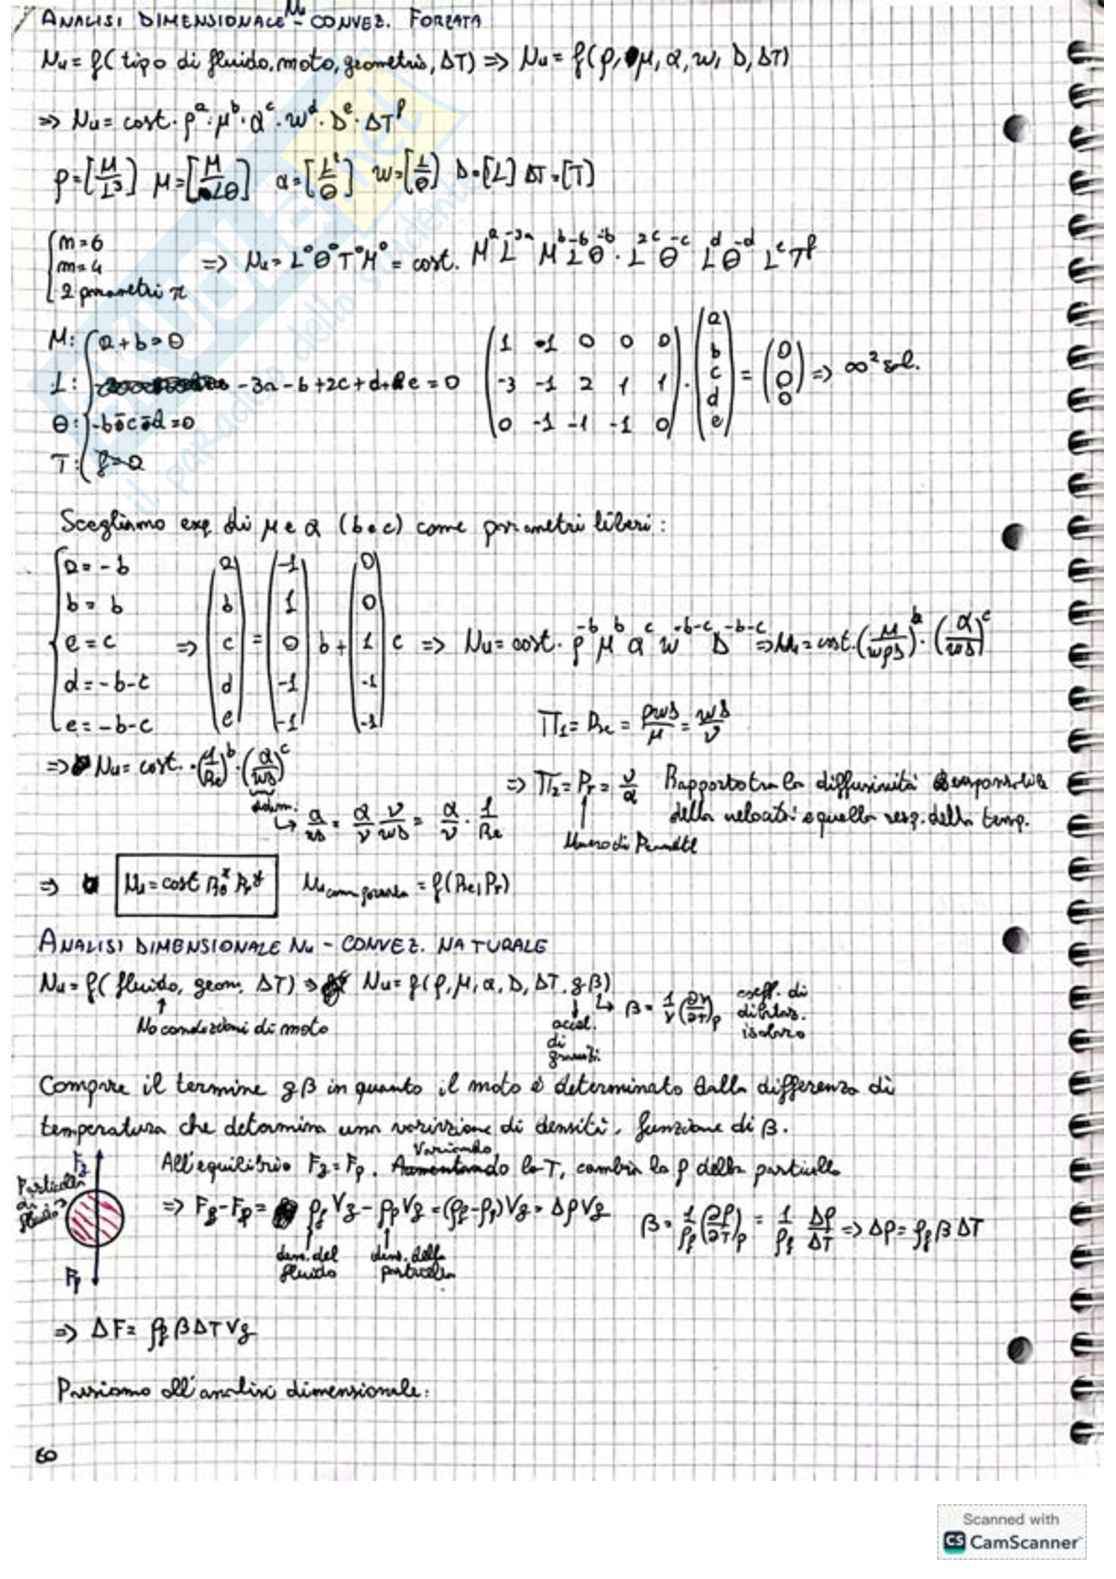 ANALISI DIMENSIONALE Nu - CONVEZ. FORZATA
Nu = f(tipo di fluido, moto, geometria, ΔT) => Nu = f(ρ, μ, α, w, D, ΔT)
=> Nu = cost · ρ^a · μ^b · α^c · w^d · D^e · ΔT^f
ρ=[M/L³] μ=[M/LΘ] α=[L²/Θ] w=[L/Θ] D=[L] ΔT=[T]
{m=6
m=4
2 parametri π
=> Nu = L⁰Θ⁰T⁰M⁰ = cost. M^a L^-3a M^b L^-b Θ^-b · L^2c Θ^-c L^d Θ^-d L^e T^f
M: a+b=0
L: -3a-b+2c+d+e=0
Θ: -b-c-d=0
T: f=0
(1 -1 0 0 0
-3 -1 2 1 1
0 -1 -1 -1 0) · (a b c d e) = (0 0 0) => ∞² sol.
Scegliamo exp di μ e α (b e c) come parametri liberi:
a=-b
b=b
e=c
d=-b-c
e=-b-c
=> (a b c d e) = (-1 1 0 -1 -1) b + (0 0 1 -1 -1) c => Nu = cost. ρ^-b μ^b α^c w^-b-c D^-b-c => Nu = cost. (μ/wρD)^b · (α/wD)^c
Π₁ = Re = ρwD/μ = wD/ν
=> Nu = cost. · (1/Re)^b · (α/wD)^c
adim.
↳ α/wD = α/ν ν/wD = α/ν · 1/Re
=> Π₂ = Pr = ν/α Rapporto tra la diffusività responsabile
della velocità e quella resp. della temp.
Numero di Prandtl
=> Nu = cost Re^x Pr^y Nu conv forzata = f(Re, Pr)
ANALISI DIMENSIONALE Nu - CONVEZ. NATURALE
Nu = f(fluido, geom, ΔT) => Nu = f(ρ, μ, α, D, ΔT, gβ)
No condizioni di moto
accel. di gravità
↳ β = 1/V (∂V/∂T)p coeff. di dilataz. isobaro
Compare il termine gβ in quanto il moto è determinato dalla differenza di
temperatura che determina una variazione di densità, funzione di β.
All'equilibrio Fg = Fp. Variando la T, cambia la ρ della particella
Particella di fluido
Fg
Fp
=> Fg-Fp = ρf Vg - ρp Vg = (ρf-ρp) Vg = Δρ Vg
dens. del fluido
dens. della particella
β = 1/ρf (∂ρ/∂T)p = 1/ρf Δρ/ΔT => Δρ = ρf β ΔT
=> ΔF = ρf β ΔT Vg
Passiamo all'analisi dimensionale:
60
Scanned with
CS CamScanner